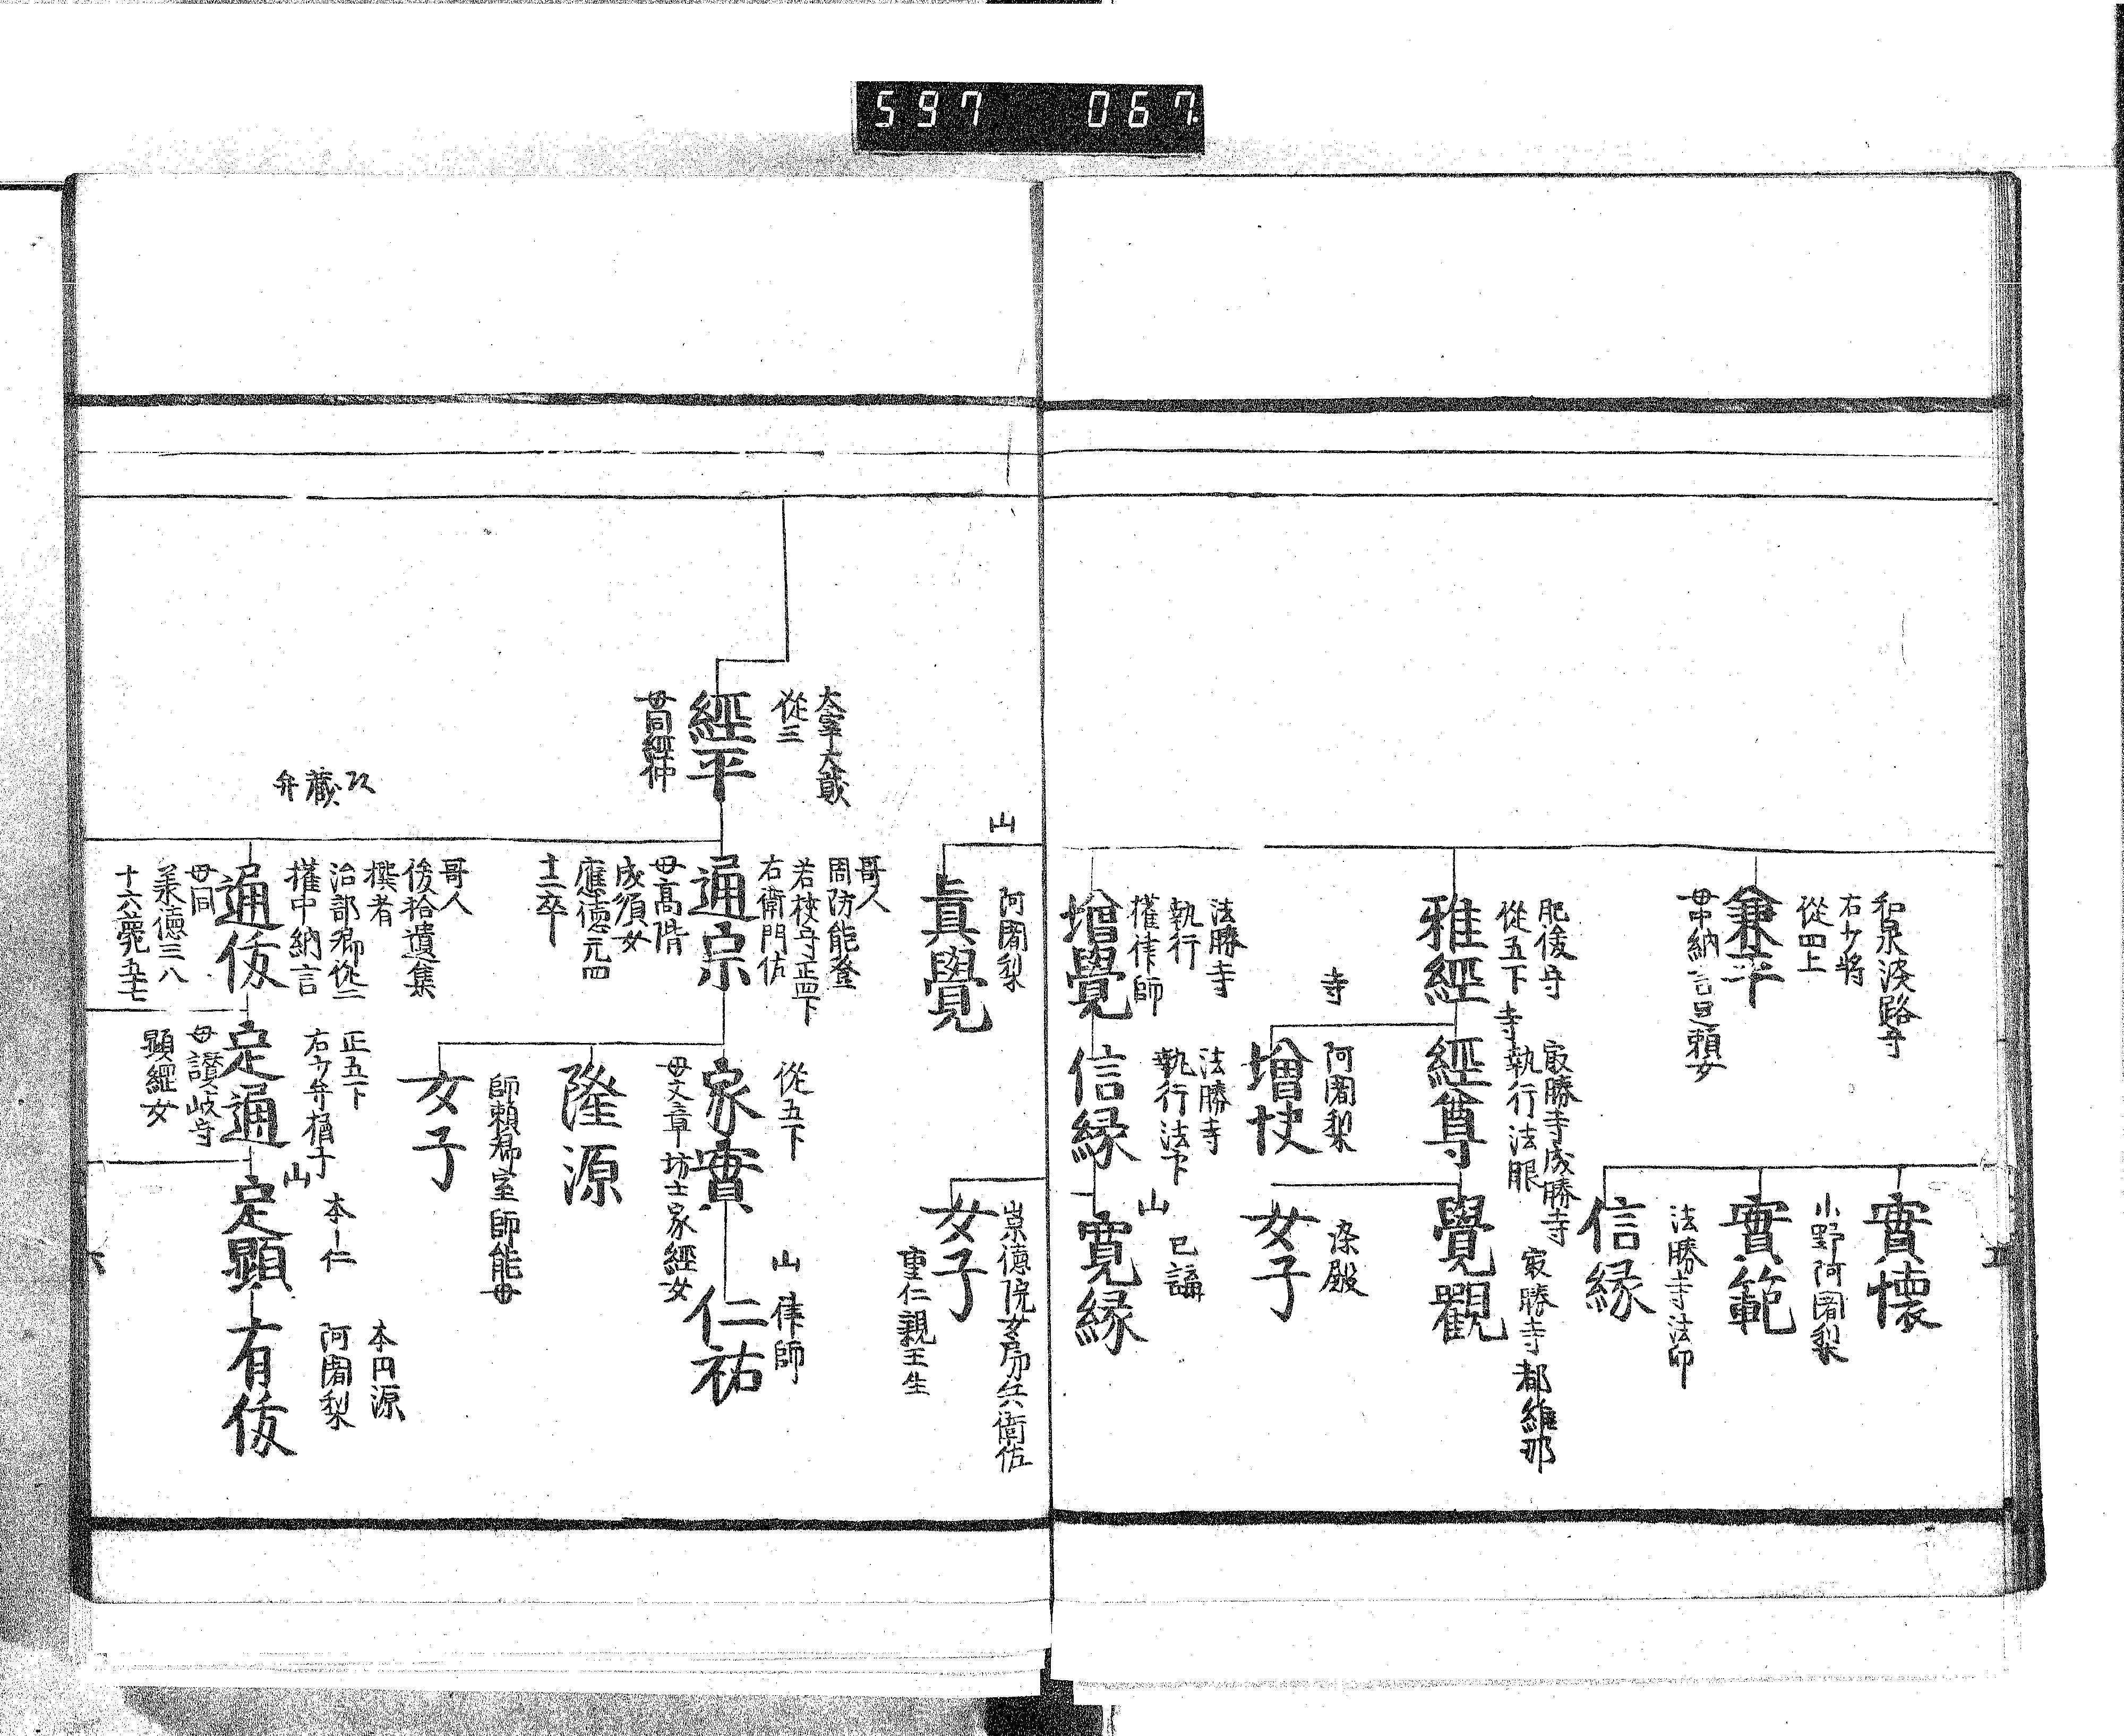 597 067
和泉淡路守
右少将
從四上
兼平
母中納言目頼女
實懷
小野阿闍梨
實範
法勝寺法印
信縁
肥後守
從五下
雅經
寺
冣勝寺成勝寺
執行法眼
經尊
冣勝寺都維那
覺觀
寺
阿闍梨
增快
染殿
女子
法勝寺
執行
權律師
增覺
法勝寺
執行法下
信縁
山
已講
寛縁
山
阿闍梨
眞覺
崇德院女房兵衛佐
女子
重仁親王生
太宰大貳
從三
經平
母同經仲
哥人
周防能登
若狹守正四下
右衛門佐
通宗
母高階
成順女
應德元四
十二卒
從五下
家實
母文章坊士家經女
山
律師
仁祐
隆源
師頼卿室師能母
女子
弁藏
哥人
後拾遺集
撰者
治部卿從二
權中納言
通俊
母同
承德三八
十六薨五十七
正五下
右少弁
定通
母讃岐守
顯經女
山
本仁
定顯
本円源
阿闍梨
有俊
六